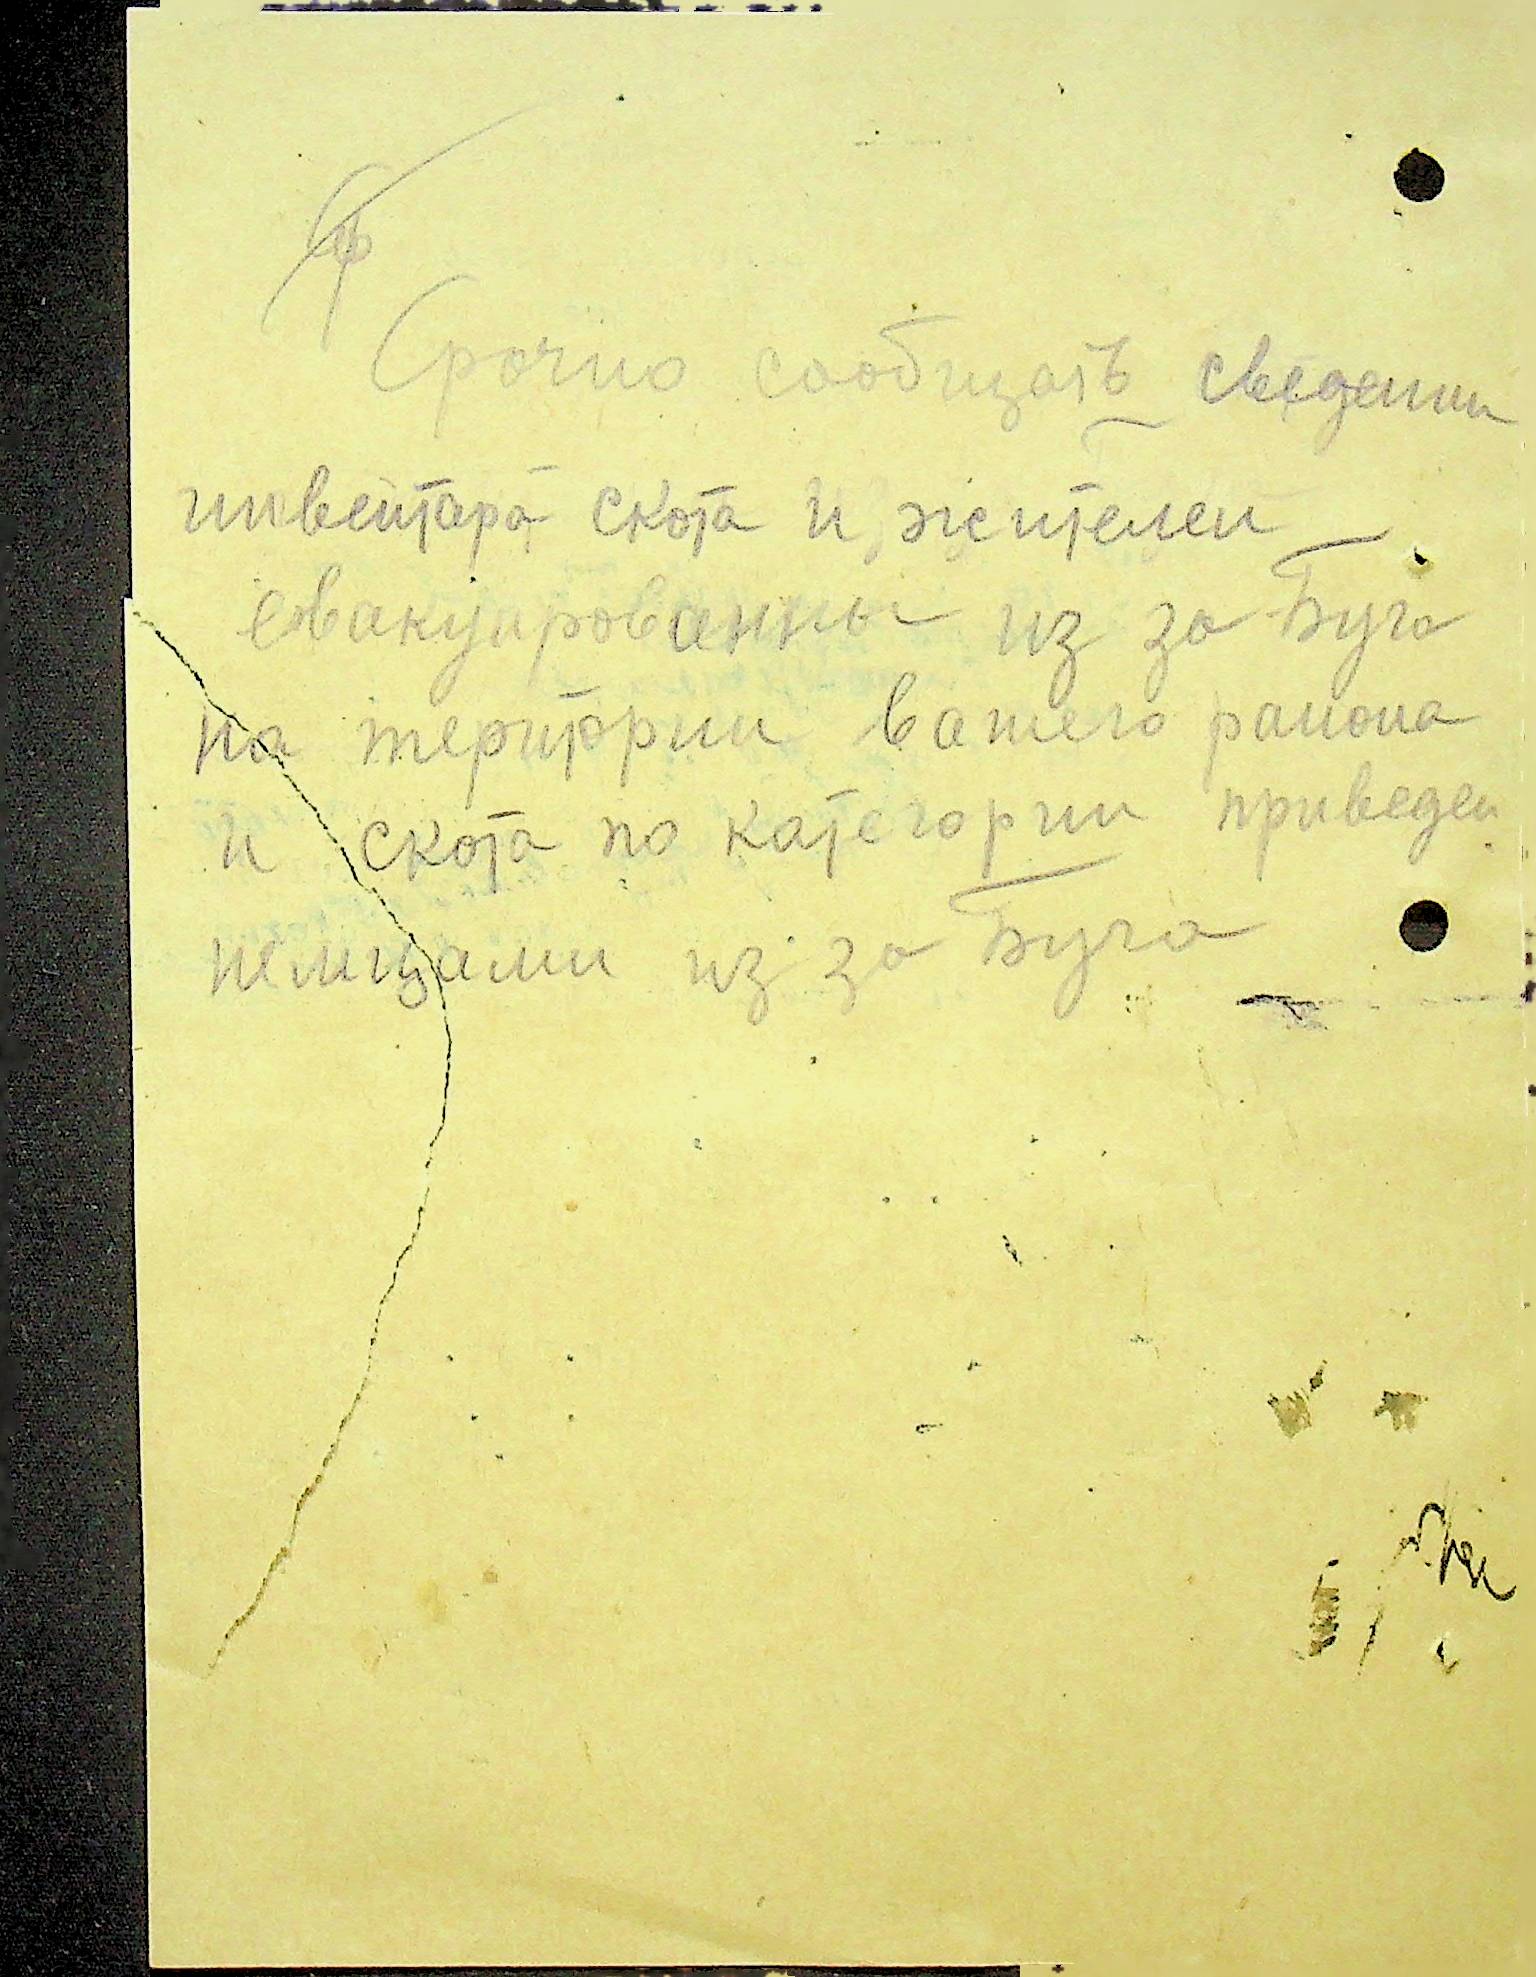 Срочно сообщать сведении
инвентара скота и жителеи
евакуированны из за Буга
на територии вашего раиона
и скота по категории приведен
немцами из за Буга